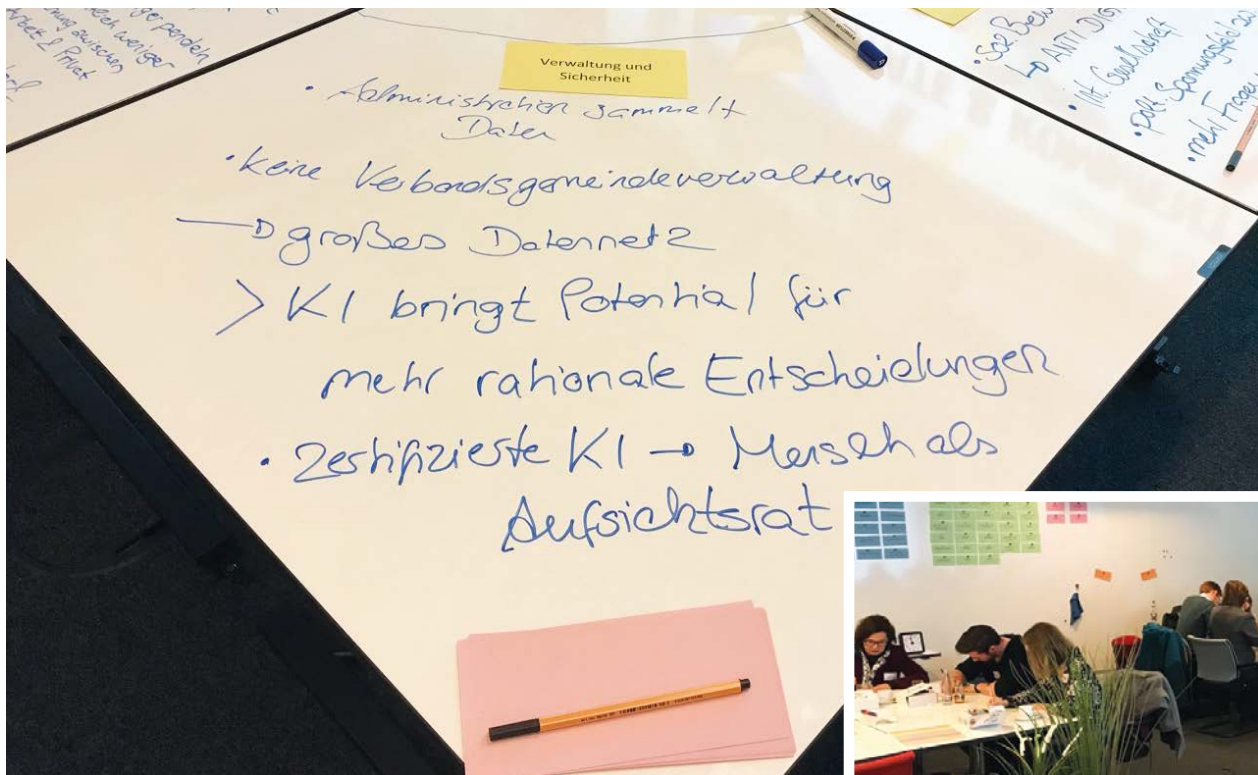 pendeln
weniger
zwischen
Arbeit & Privat
Verwaltung und
Sicherheit
• Administration sammelt
Daten
• keine Verbandsgemeindeverwaltung
→ großes Datennetz
> KI bringt Potential für
mehr rationale Entscheidungen
• Zertifizierte KI → Mensch als
Aufsichtsrat
• Soz. Bew
↳ ANTI DIGI
• Int. Gesellschaft
• polit. Spannungsfeld
• mehr Fragen